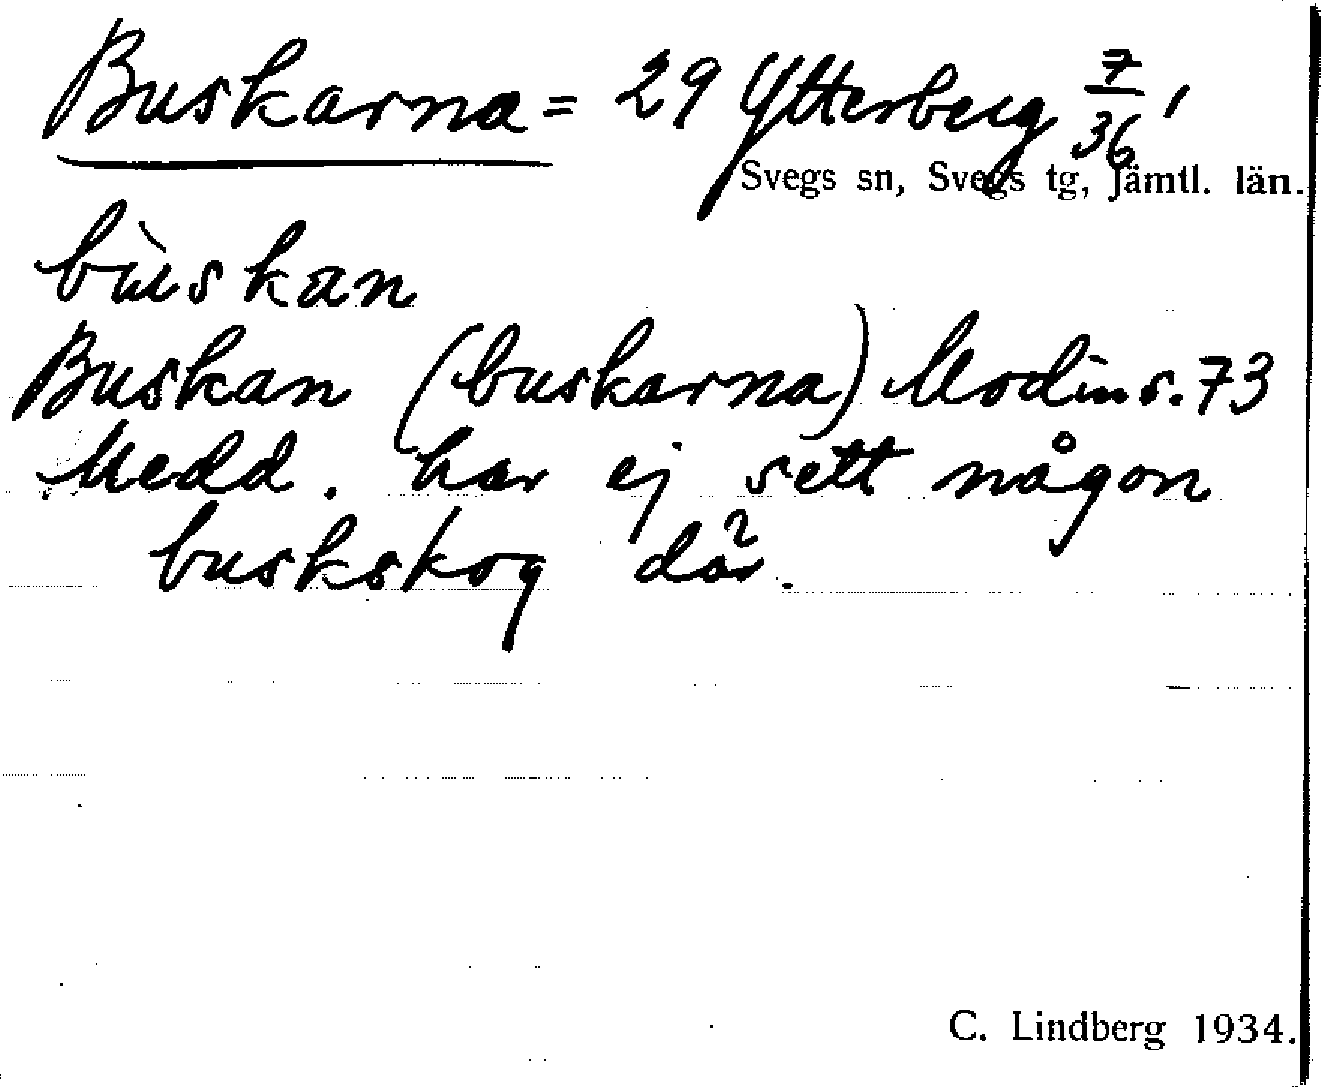 Buskarna = 29 Ytterberg 7/36,
Svegs sn, Svegs tg, Jämtl. län.
bùskan
Buskan (buskarna) Modin s. 73
Medd. har ej sett någon
buskskog där.
C. Lindberg 1934.